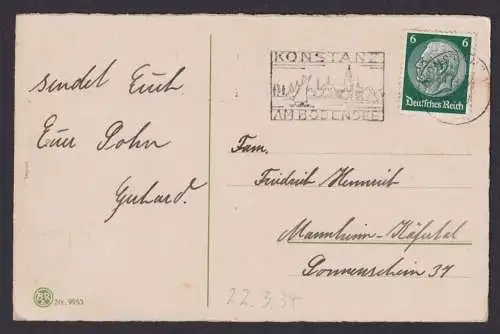 sendet Euch
Euer Sohn
Gerhard.
KONSTANZ
AM BODENSEE
6 6
Deutsches Reich
Fam.
Friedrich Heinrich
Mannheim-Käfertal
Sonnenschein 37
22.3.34
Nr. 9953